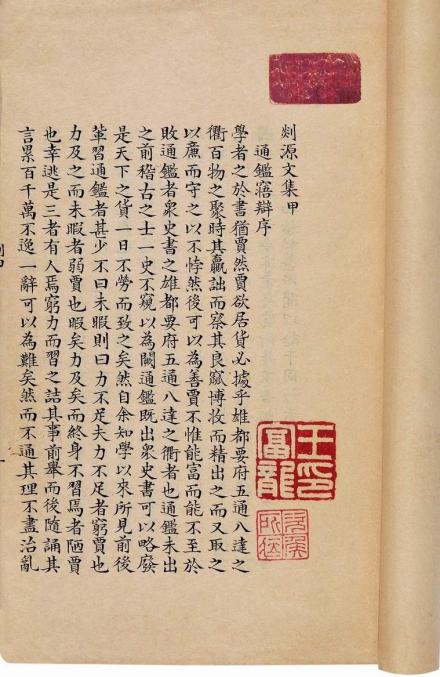 剡源文集甲
通鑑寤辯序
學者之於書猶賈然賈欲居貨必據乎雄都要府五通八達之
衢百物之聚時其贏詘而察其良窳博收而精出之而又取之
以廉而守之以不悖然後可以為善賈不惟能富而能不至於
敗通鑑者眾史書之雄都要府五通八達之衢者也通鑑未出
之前稽古之士一史不窺以為闕通鑑既出眾史書可以略廢
是天下之貨一日不勞而致之矣然自余知學以來所見前後
輩習通鑑者甚少不曰未暇則曰力不足夫力不足者窮賈也
力及之而未暇者弱賈也暇矣力及矣而終身不習焉者陋賈
也幸逃是三者有人焉窮力而習之詰其事前舉而後隨誦其
言累百千萬不逸一辭可以為難矣然而不通其理不盡治亂
王印
富龍